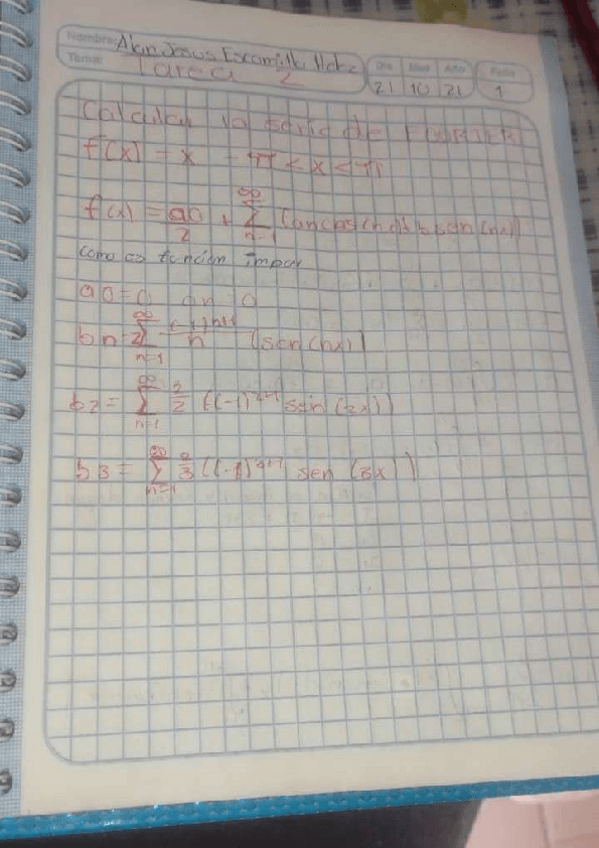 Nombre: Alan Jesus Escamilla Hdez
Tema: Tarea 2
Día Mes Año Folio
21 10 21 1
Calcular la serie de FOURIER
f(x) = x -π < x < π
f(x) = a0/2 + ∞ Σ n=1 (an cos(nx) + bn sen (nx))
como es función impar
a0 = 0 an = 0
bn = 2 ∞ Σ n=1 (-1)^n+1 / n (sen(nx))
b2 = ∞ Σ n=1 2/2 ((-1)^2+1 sen (2x))
b3 = ∞ Σ n=1 2/3 ((-1)^3+1 sen (3x))